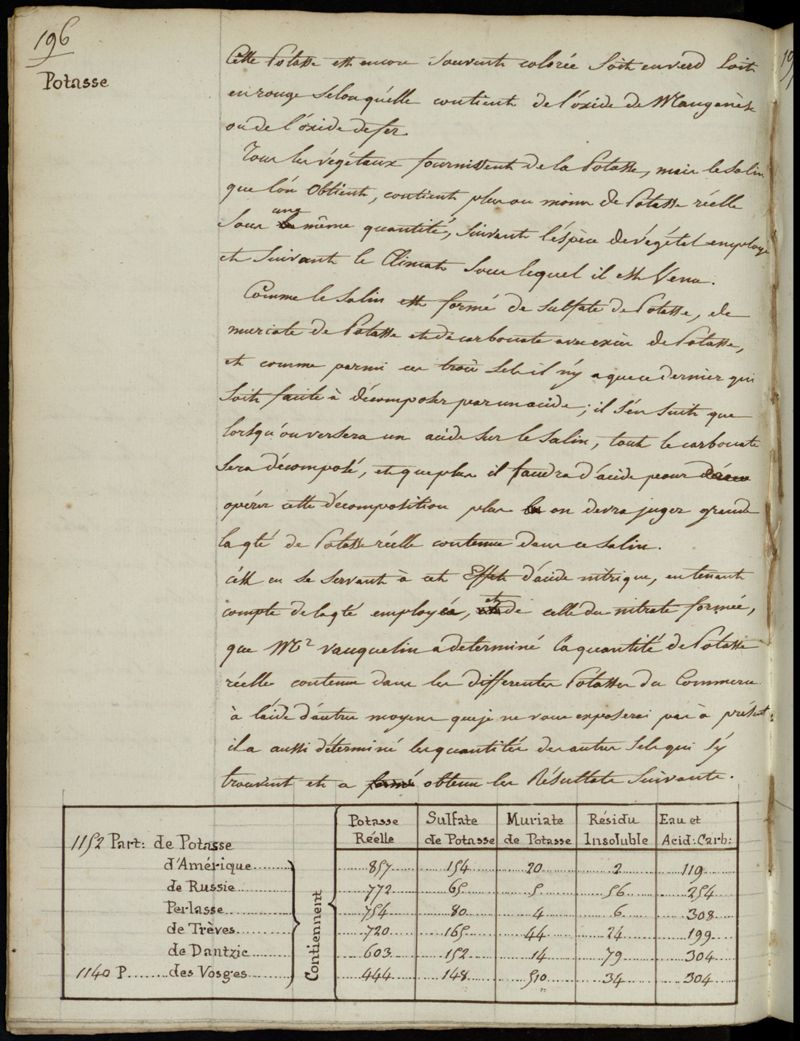 196
Potasse
Cette Potasse est encore souvent colorée soit en verd soit
en rouge selon qu'elle contient de l'oxide de Manganèse
ou de l'oxide de fer
Tous les végétaux fournissent de la Potasse, mais le salin
que l'on obtient, contient plus ou moins de Potasse réelle
sous une même quantité, suivant l'éspèce de végétal employé
et suivant le Climat sous lequel il est Venu.
Comme le salin est formé de sulfate de Potasse, de
muriate de Potasse et de carbonate avec excès de Potasse,
et comme parmi ces trois sels il n'y a que ce dernier qui
soit facile à décomposer par un acide; il s'en suit que
lorsqu'on versera un acide sur le salin, tout le carbonate
sera décomposé, et que plus il faudra d'acide pour
opérer cette décomposition plus on devra juger grande
la qté de Potasse réelle contenue dans ce salin.
c'est en se servant à cet Effet d'acide nitrique, en tenant
compte de la qté employée, et de celle du nitrate formée,
que Mr Vauquelin a determiné la quantité de Potasse
réelle contenue dans les differentes Potasses du Commerce
à l'aide d'autres moyens que je ne vous exposerai pas à présent
il a aussi déterminé les quantités des autres sels qui s'y
trouvent et a obtenu les Résultats suivants.
Potasse Réelle | Sulfate de Potasse | Muriate de Potasse | Résidu Insoluble | Eau et Acid: Carb:
1152 Part: de Potasse
Contiennent
d'Amérique 857 154 20 2 119
de Russie 772 65 5 56 254
Perlasse 754 80 4 6 308
de Trèves 720 165 44 24 199
de Dantzic 603 152 14 79 304
1140 P. des Vosges 444 148 510 34 304